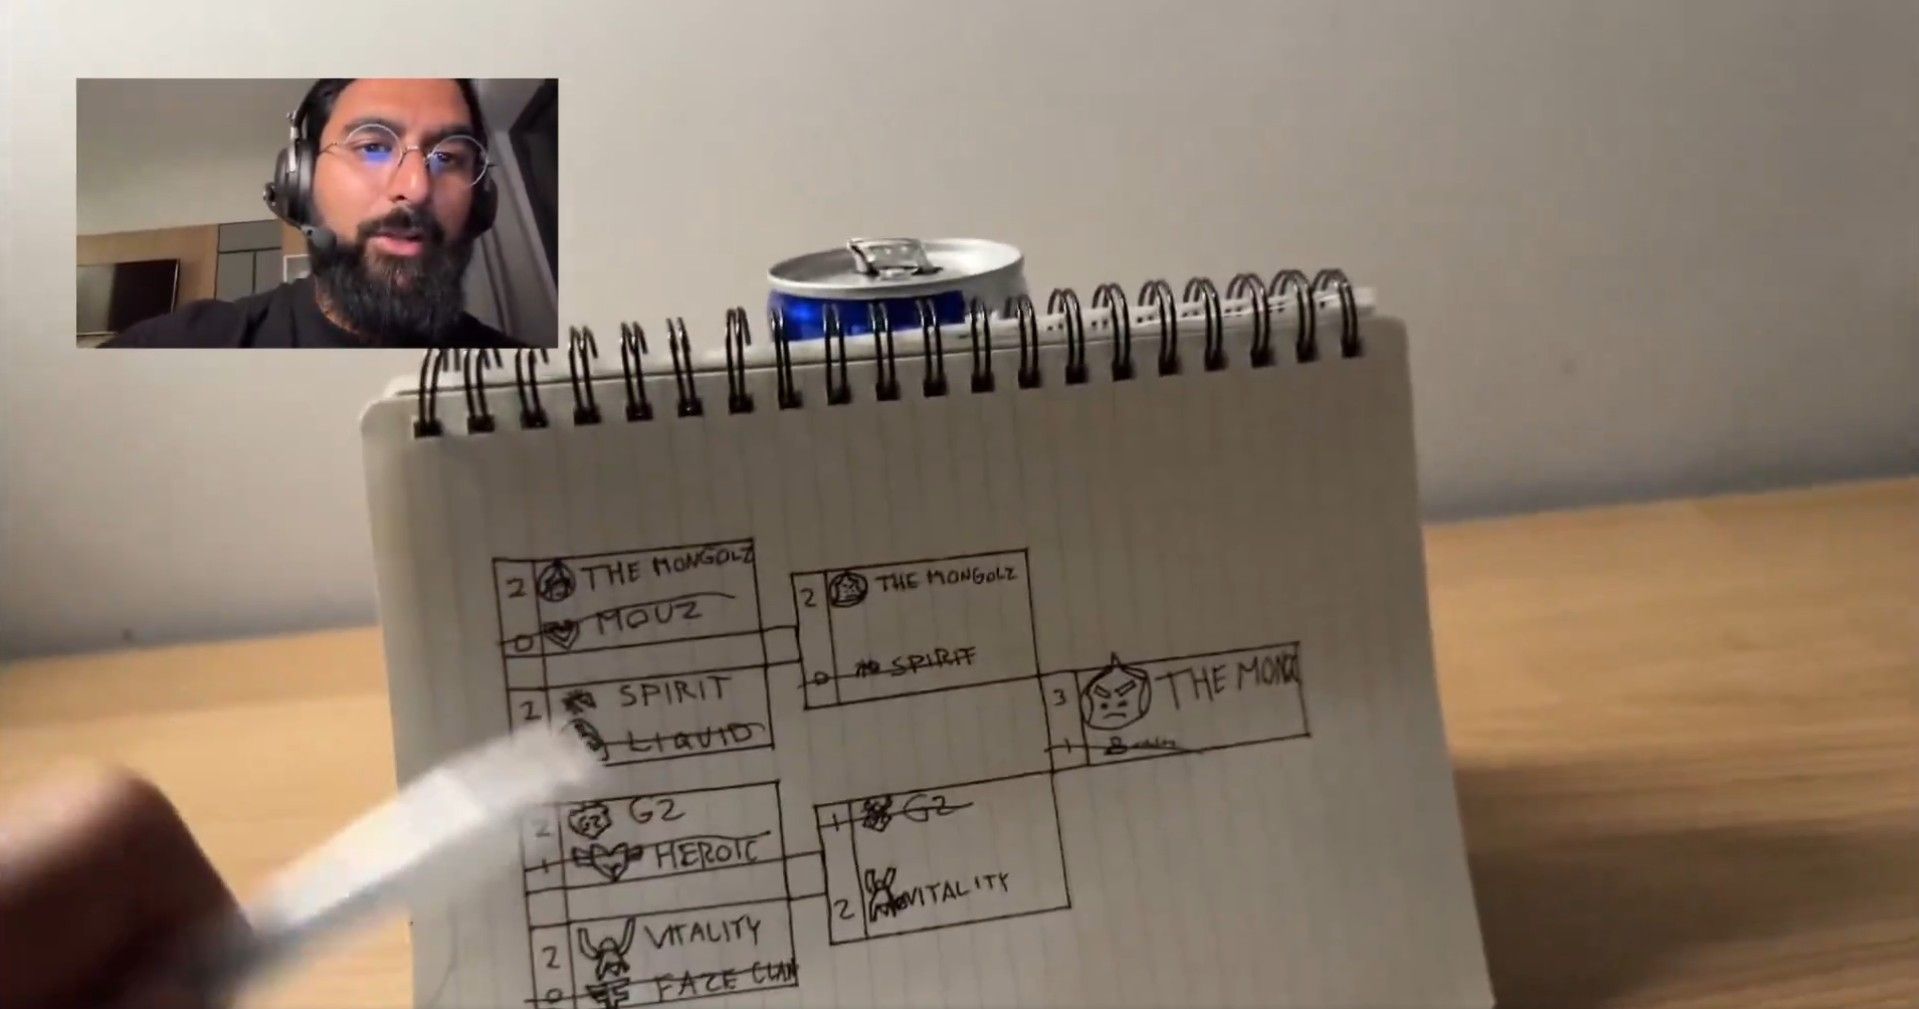 2 THE MONGOLZ
0 MOUZ
2 SPIRIT
LIQUID
2 G2 G2
1 HEROIC
2 VITALITY
0 FAZE CLAN
2 THE MONGOLZ
0 SPIRIT
1 G2
2 VITALITY
3 THE MONG
1